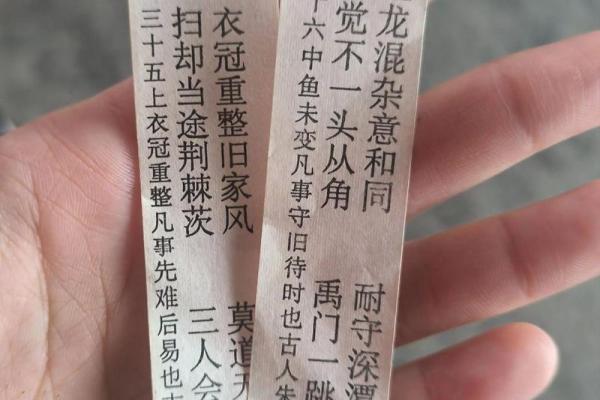 龙混杂意和同 耐守深潭
觉不一头从角 禹门一跳
十六中鱼未变凡事守旧待时也古人朱
衣冠重整旧家风 莫道
扫却当途荆棘茨 三人会
三十五上衣冠重整凡事先难后易也